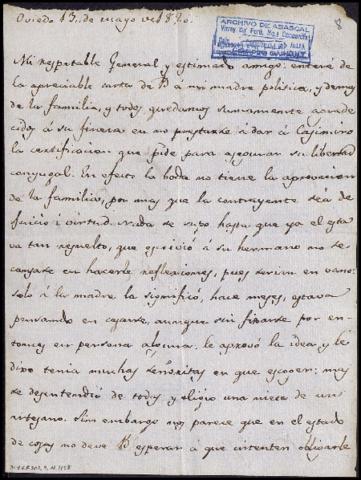 Oviedo 13. de mayo de 1820.
8
ARCHIVO DE ABASCAL
Mi respetable General y estimado amigo: enteré de
la apreciable carta de V. á mi madre política, y demas
de la familia, y todos quedamos sumamente agrade
cidos á su fineza en no prestarse á dár á Casimiro
la certificacion que pide para asegurar su libertad
conyugal. En efecto la boda no tiene la aprovacion
de la familia, por mas que la contrayente séa de
juicio i virtud. Nada se supo hasta que ya él esta
va tan resuelto, que escrivió á su hermano no se
cansase en hacerle reflexiones, pues serian en vano:
solo á la madre la significó, hace meses, estava
pensando en casarse, aunque sin fixarse por en-
tonces en persona alguna: le aprovó la idea y le
dixo tenia muchas señoritas en que escoger; mas
se desentendió de todas y eligio una nieta de un
artesano. Sin embargo nos parece que en el estado
de cosas no deve V. esperar á que intenten obligarle